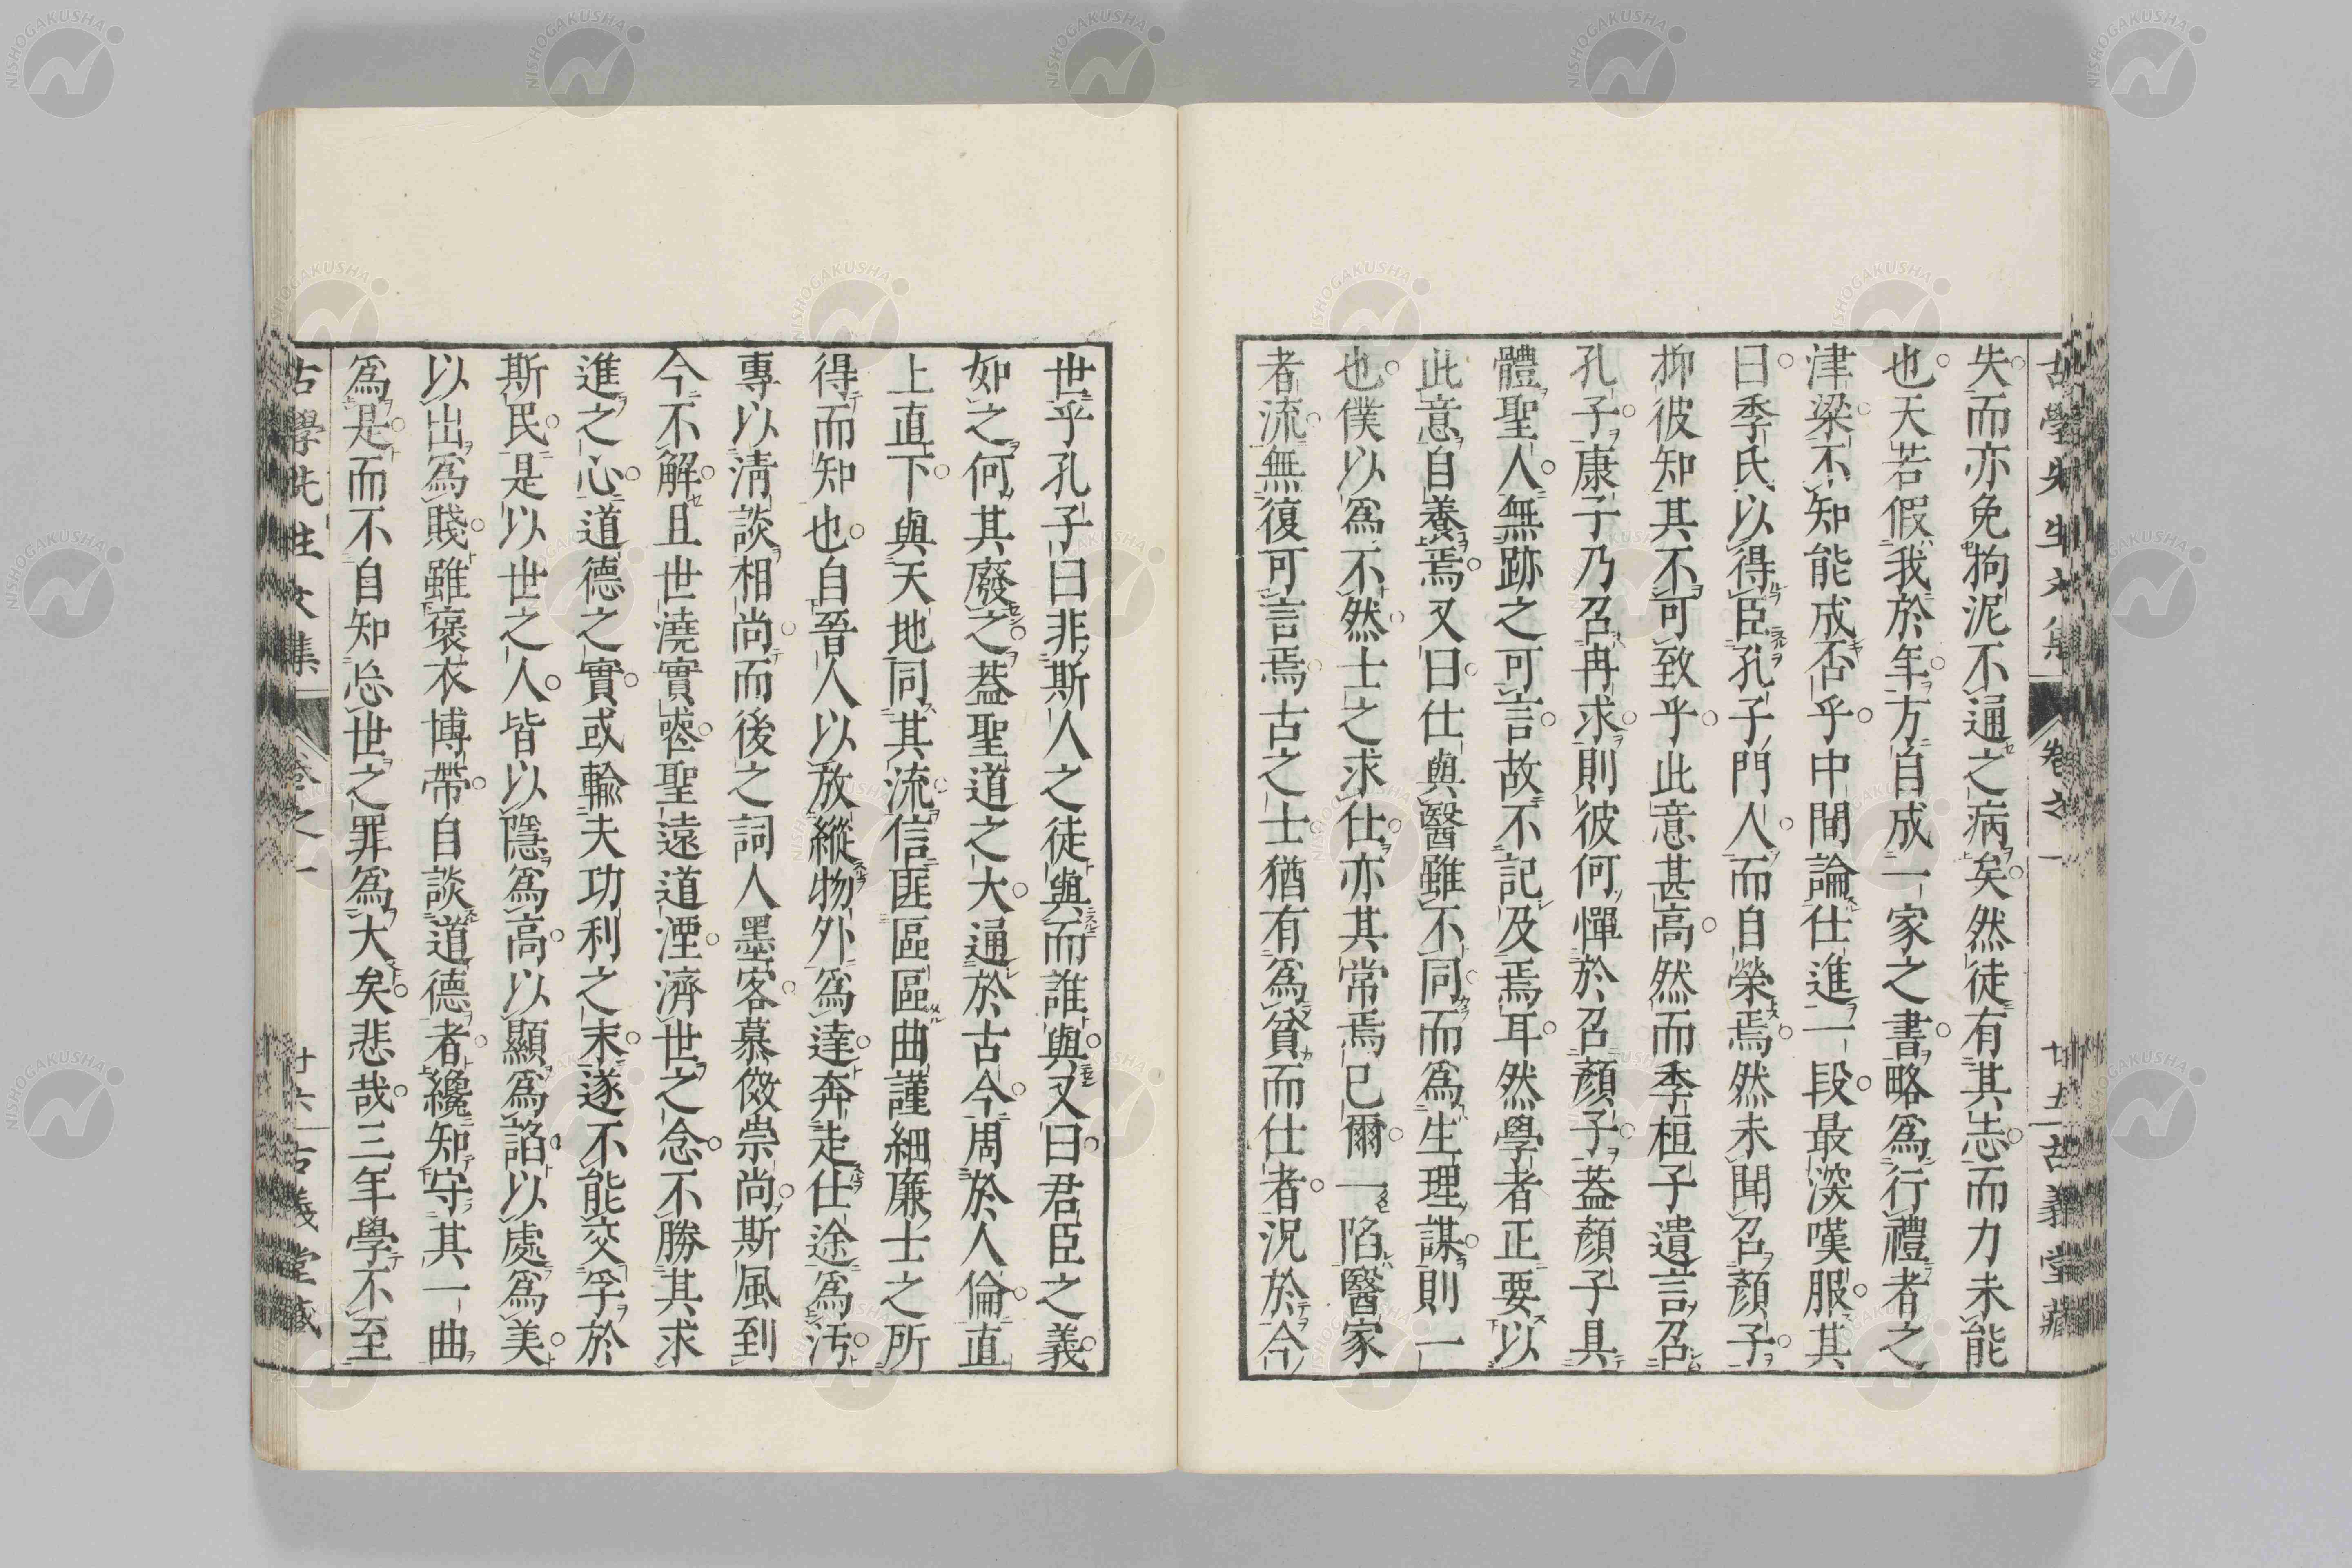 古學先生文集 卷之一 廿五 古義堂藏
失而亦免拘泥不通之病矣然徒有其志而力未能
也天若假我於年方自成一家之書略爲行禮者之
津梁不知能成否乎中間論仕進一段最深嘆服其
曰季氏以得臣孔子門人而自榮焉然未聞召顏子
抑彼知其不可致乎此意甚高然而季桓子遺言召
孔子康子乃召冉求則彼何憚於召顏子蓋顏子具
體聖人無跡之可言故不記及焉耳然學者正要以
此意自養焉又曰仕與醫雖不同而爲生理謀則一
也僕以爲不然士之求仕亦其常焉已爾一陷醫家
者流無復可言焉古之士猶有爲貧而仕者況於今
世乎孔子曰非斯人之徒與而誰與又曰君臣之義
如之何其廢之蓋聖道之大通於古今周於人倫直
上直下與天地同其流信匪區區曲謹細廉士之所
得而知也自晉人以放縱物外爲達奔走仕途爲汚
專以淸談相尚而後之詞人墨客慕傚崇尚斯風到
今不解且世澆實喪聖遠道湮濟世之念不勝其求
進之心道德之實或輸夫功利之末遂不能交孚於
斯民是以世之人皆以隱爲高以顯爲諂以處爲美
以出爲賤雖褒衣博帶自談道德者纔知守其一曲
爲是而不自知忘世之罪爲大矣悲哉三年學不至
古學先生文集 卷之一 廿六 古義堂藏
NISHOGAKUSHA